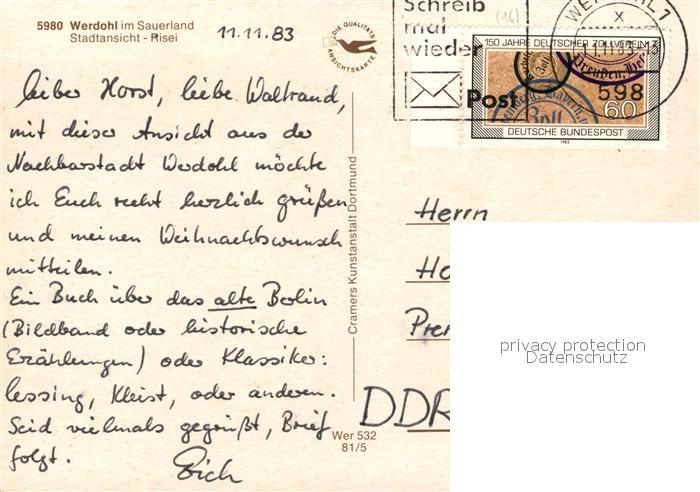 5980 Werdohl im Sauerland
Stadtansicht - Risei
11.11.83
DIE QUALITÄTS
ANSICHTSKARTE
Schreib
mal
wieder
Post
(16)
WERDOHL 1
x
598
150 JAHRE DEUTSCHER ZOLLVEREIN
Preußen
Zoll
60
DEUTSCHE BUNDESPOST
1983
Lieber Horst, liebe Waltraud,
mit dieser Ansicht aus der
Nachbarstadt Werdohl möchte
ich Euch recht herzlich grüßen
und meinen Weihnachtswunsch
mitteilen.
Ein Buch über das alte Berlin
(Bildband oder historische
Erzählungen) oder Klassiker:
Lessing, Kleist, oder anderen.
Seid vielmals gegrüßt, Brief
folgt.
Erich
Cramers Kunstanstalt Dortmund
Wer 532
81/5
Herrn
Ho
DDR
privacy protection
Datenschutz